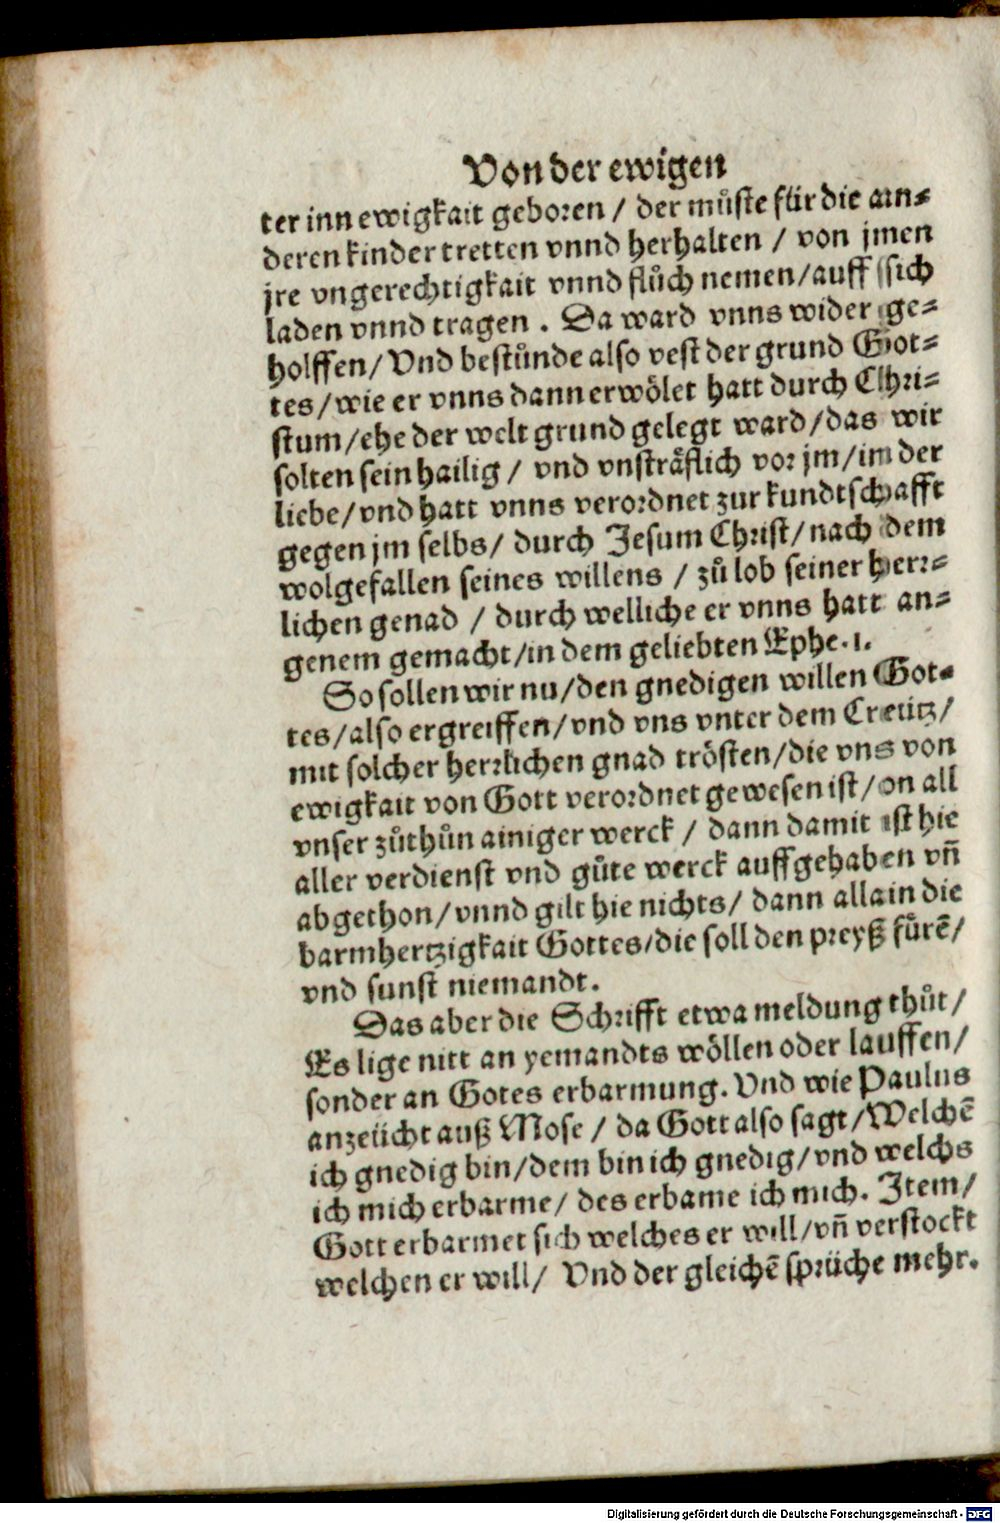 Von der ewigen
ter inn ewigkait geboren / der můste für die ann-
deren kinder tretten vnnd herhalten / von jmen
jre vngerechtigkait vnnd flůch nemen/auff sich
laden vnnd tragen . Da ward vnns wider ge-
holffen/Vnd bestůnde also vest der grund Got-
tes/wie er vnns dann erwölet hatt durch Chri-
stum/ehe der welt grund gelegt ward/das wir
solten sein hailig / vnd vnsträflich vor jm/im der
liebe/vnd hatt vnns verordnet zur kundtschafft
gegen jm selbs/ durch Jesum Christ/nach dem
wolgefallen seines willens / zů lob seiner herr-
lichen genad / durch welliche er vnns hatt an-
genem gemacht/in dem geliebten Ephe.1.
So sollen wir nu/den gnedigen willen Got-
tes/also ergreiffen/vnd vns vnter dem Creütz/
mit solcher herrlichen gnad trösten/die vns von
ewigkait von Gott verordnet gewesen ist/on all
vnser zůthůn ainiger werck / dann damit ist hie
aller verdienst vnd gůte werck auffgehaben vñ
abgethon/vnnd gilt hie nichts/ dann allain die
barmhertzigkait Gottes/die soll den preyß fůrē/
vnd sunst niemandt.
Das aber die Schrifft etwa meldung thůt/
Es lige nitt an yemandts wöllen oder lauffen/
sonder an Gotes erbarmung. Vnd wie Paulus
anzeücht auß Mose / da Gott also sagt/Welchē
ich gnedig bin/dem bin ich gnedig/vnd welchs
ich mich erbarme/ des erbame ich mich. Item/
Gott erbarmet sich welches er will/vñ verstockt
welchen er will/ Vnd der gleichē sprüche mehr.
Digitalisierung gefördert durch die Deutsche Forschungsgemeinschaft - DFG